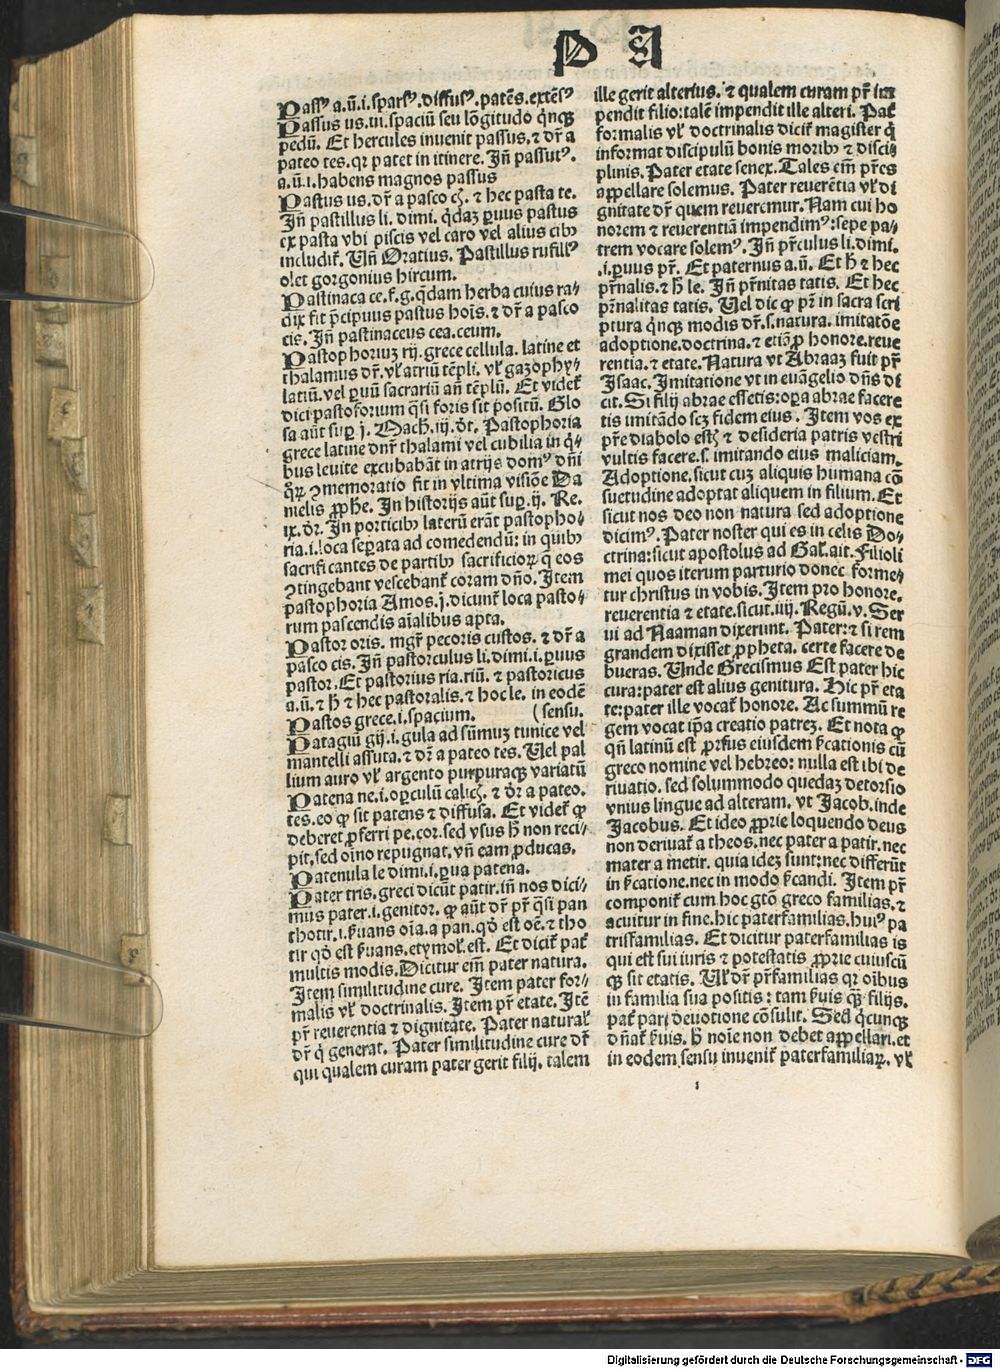 P A
Passꝰ a.ū.i.sparsꝰ.diffusꝰ.patēs.extēsꝰ
Passus us.ui.spaciū seu lōgitudo qͥnqꝫ
pedū. Et hercules inuenit passus.⁊ dr̄ a
pateo tes.qꝛ patet in itinere. Jn̄ passutꝰ.
a.ū.i.habens magnos passus
Pastus us.dr̄ a pasco cꝭ. ⁊ hec pasta te.
Jn̄ pastillus li. dimi. qͥdaꝫ ꝑuus pastus
ex pasta vbi piscis vel caro vel alius cibꝰ
includit᷑. Vn̄ Oratius. Pastillus rufillꝰ
olet gorgonius hircum.
Pastinaca ce.f.g.qͣdam herba cuius ra⸗
dix fit p̄cipuus pastus hoīs.⁊ dr̄ a pasco
cis. Jn̄ pastinaceus cea.ceum.
Pastophoriuꝫ rij.grece cellula. latine et
thalamus dr̄.vl̓ atriū tēpli. vl̓ gazophy⸗
latiū.vel ꝑuū sacrariū an̄ tēplū. Et videt᷑
dici pastoforium qͣsi foris sit positū. Glo
sa aūt suꝑ j. Mach̄.iij.dr̄. Pastophoria
grece latine dnr̄ thalami vel cubilia in qͥ⸗
bus leuite excubabāt in atrijs domꝰ dn̄i
qͦꝝ ꝯmemoratio fit in vltima visiōe Da
nielis ꝓphe. Jn historijs aūt suꝑ.ij. Re.
ix.dr̄. Jn porticibꝰ laterū erāt pastopho⸗
ria.i.loca seꝑata ad comedendū: in quibꝰ
sacrificantes de partibꝰ sacrificioꝝ q̄ eos
ꝯtingebant vescebant᷑ coram dn̄o. Jtem
pastophoria Amos.j.dicunt᷑ loca pasto⸗
rum pascendis aīalibus apta.
Pastor oris. mgr̄ pecoris custos. ⁊ dr̄ a
pasco cis. Jn̄ pastorculus li.dimi.i.ꝑuus
pastor. Et pastorius ria.riū. ⁊ pastoricus
a.ū.⁊ h̄ ⁊ hec pastoralis.⁊ hoc le. in eodē
Pastos grece.i.spacium. (sensu.
Patagiū gij.i.gula ad sūmuꝫ tunice vel
mantelli assuta.⁊ dr̄ a pateo tes. Uel pal
lium auro vl̓ argento purpuraqꝫ variatū
Patena ne.i.oꝑculū calicꝭ. ⁊ dr̄ a pateo.
tes.eo ꝙ sit patens ⁊ diffusa. Et videt᷑ ꝙ
deberet ꝓferri pe.cor.sed vsus h̄ non reci⸗
pit.sed oīno repugnat.vn̄ eam ꝓducas.
Patenula le dimi.i.ꝑua patena.
Pater tris.greci dicūt patir.in̄ nos dici⸗
mus pater.i.genitor. ꝙ aūt dr̄ pr̄ qͣsi pan
thotir.i.ẜuans oīa.a pan.qd̓ est oē.⁊ tho
tir qd̓ est ẜuans.etymol̓.est. Et dicit᷑ pat᷑
multis modis. Dicitur em̄ pater natura.
Jtem similitudine cure. Jtem pater for⸗
malis vl̓ doctrinalis. Jtem pr̄ etate. Jtē
pr̄ reuerentia ⁊ dignitate. Pater natural̓
dr̄ qͥ generat. Pater similitudine cure dr̄
qui qualem curam pater gerit filij. talem
ille gerit alterius. ⁊ qualem curam pr̄ im
pendit filio:talē impendit ille alteri. Pat᷑
formalis vl̓ doctrinalis dicit᷑ magister qͥ
informat discipulū bonis moribꝰ ⁊ disci
plinis. Pater etate senex. Tales em̄ pr̄es
appellare solemus. Pater reuerētia vl̓ di
gnitate dr̄ quem reueremur. Nam cui ho
norem ⁊ reuerentiā impendimꝰ:sepe pa⸗
trem vocare solemꝰ. Jn̄ pr̄culus li.dimi.
.i.ꝑuus pr̄. Et paternus a.ū. Et h̄ ⁊ hec
pr̄nalis.⁊ h̄ le. Jn̄ pr̄nitas tatis. Et hec
pr̄nalitas tatis. Uel dic ꝙ pr̄ in sacra scri
ptura qͥnqꝫ modis dr̄.s.natura. imitatōe
adoptione.doctrina.⁊ etiā ꝓ honore.reue
rentia.⁊ etate. Natura vt Abraaꝫ fuit pr̄
Jsaac. Jmitatione vt in euāgelio dn̄s di
cit. Si filij abrae essetis:oꝑa abrae facere
tis imitādo scꝫ fidem eius. Jtem vos ex
pr̄e diabolo estꝭ ⁊ desideria patris vestri
vultis facere.s. imitando eius maliciam.
Adoptione.sicut cuꝫ aliquis humana cō
suetudine adoptat aliquem in filium. Et
sicut nos deo non natura sed adoptione
dicimꝰ. Pater noster qui es in celis Do⸗
ctrina:sicut apostolus ad Gal̓.ait. Filioli
mei quos iterum parturio donec forme⸗
tur christus in vobis. Jtem pro honore.
reuerentia ⁊ etate.sicut.iiij. Regū.v. Ser
ui ad Naaman dixerunt. Pater:⁊ si rem
grandem dixisset ꝓpheta. certe facere de
bueras. Unde Grecismus Est pater hic
cura:pater est alius genitura. Hic pr̄ eta
te:pater ille vocat᷑ honore. Ac summū re
gem vocat ip̄a creatio patreꝫ. Et nota ꝙ
qn̄ latinū est ꝓrsus eiusdem ẜcationis cū
greco nomine vel hebreo: nulla est ibi de
riuatio. sed solummodo quedaꝫ detorsio
vnius lingue ad alteram. vt Jacob.inde
Jacobus. Et ideo ꝓprie loquendo deus
non deriuat᷑ a theos.nec pater a patir.nec
mater a metir. quia ideꝫ sunt:nec differūt
in ẜcatione.nec in modo ẜcandi. Jtem pr̄
componit᷑ cum hoc gtō greco familias.⁊
acuitur in fine.hic paterfamilias.huiꝰ pa
trisfamilias. Et dicitur paterfamilias is
qui est sui iuris ⁊ potestatis ꝓprie cuiuscū
qꝫ sit etatis. Ul̓ dr̄ pr̄familias qꝛ oībus
in familia sua positis: tam ẜuis qͣꝫ filijs.
pat᷑ pari deuotione cōsulit. Sed qͥcunqꝫ
dn̄at᷑ ẜuis. h̄ noīe non debet appellari.et
in eodem sensu inuenit᷑ paterfamiliaꝝ. vl̓
Digitalisierung gefördert durch die Deutsche Forschungsgemeinschaft - DFG